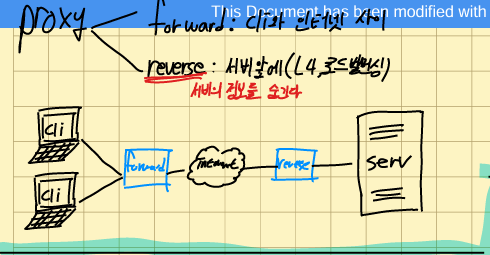 This Document has been modified with
proxy
forward : cli와 인터넷 사이
reverse : 서버앞에(L4, 로드밸런싱)
서버의 정보를 숨기다
cli
cli
forward
Internet
reverse
serv